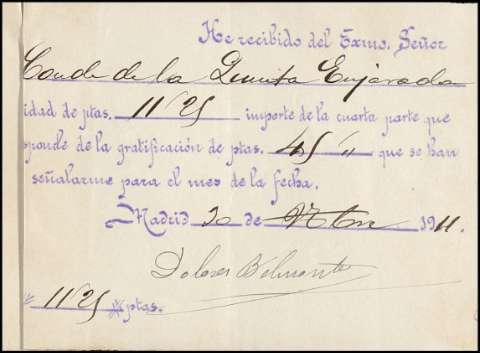 He recibido del Exmo. Señor
Conde de la Quinta Enjarada
idad de ptas. 11'25 importe de la cuarta parte que
sponde de la gratificación de ptas. 45 " que se han
señalarme para el mes de la fecha.
Madrid 30 de 1911.
Dolores Belmonte
11'25 ptas.